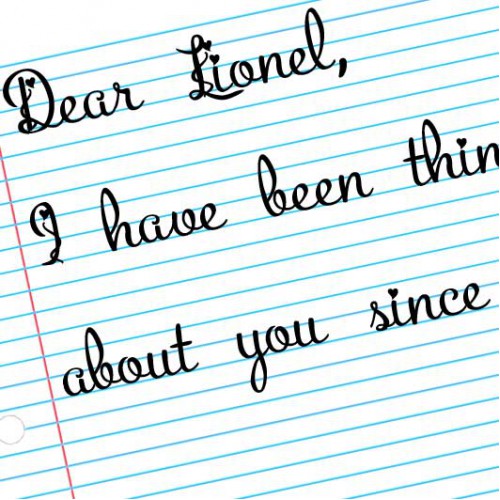 Dear Lionel,
I have been thin
about you since